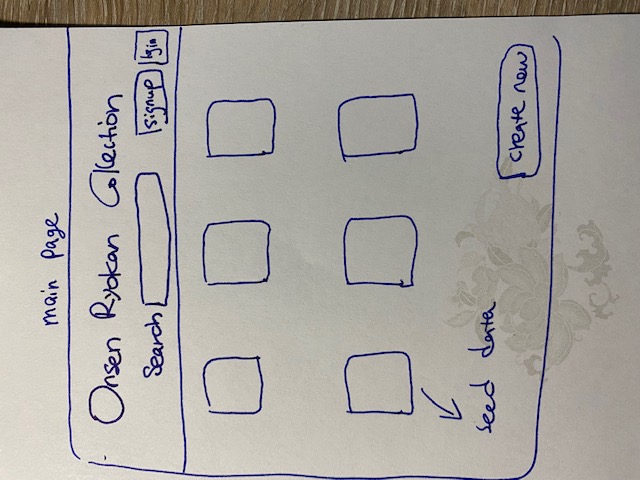 main page
Onsen Ryokan Collection
Search signup login
seed data
create new